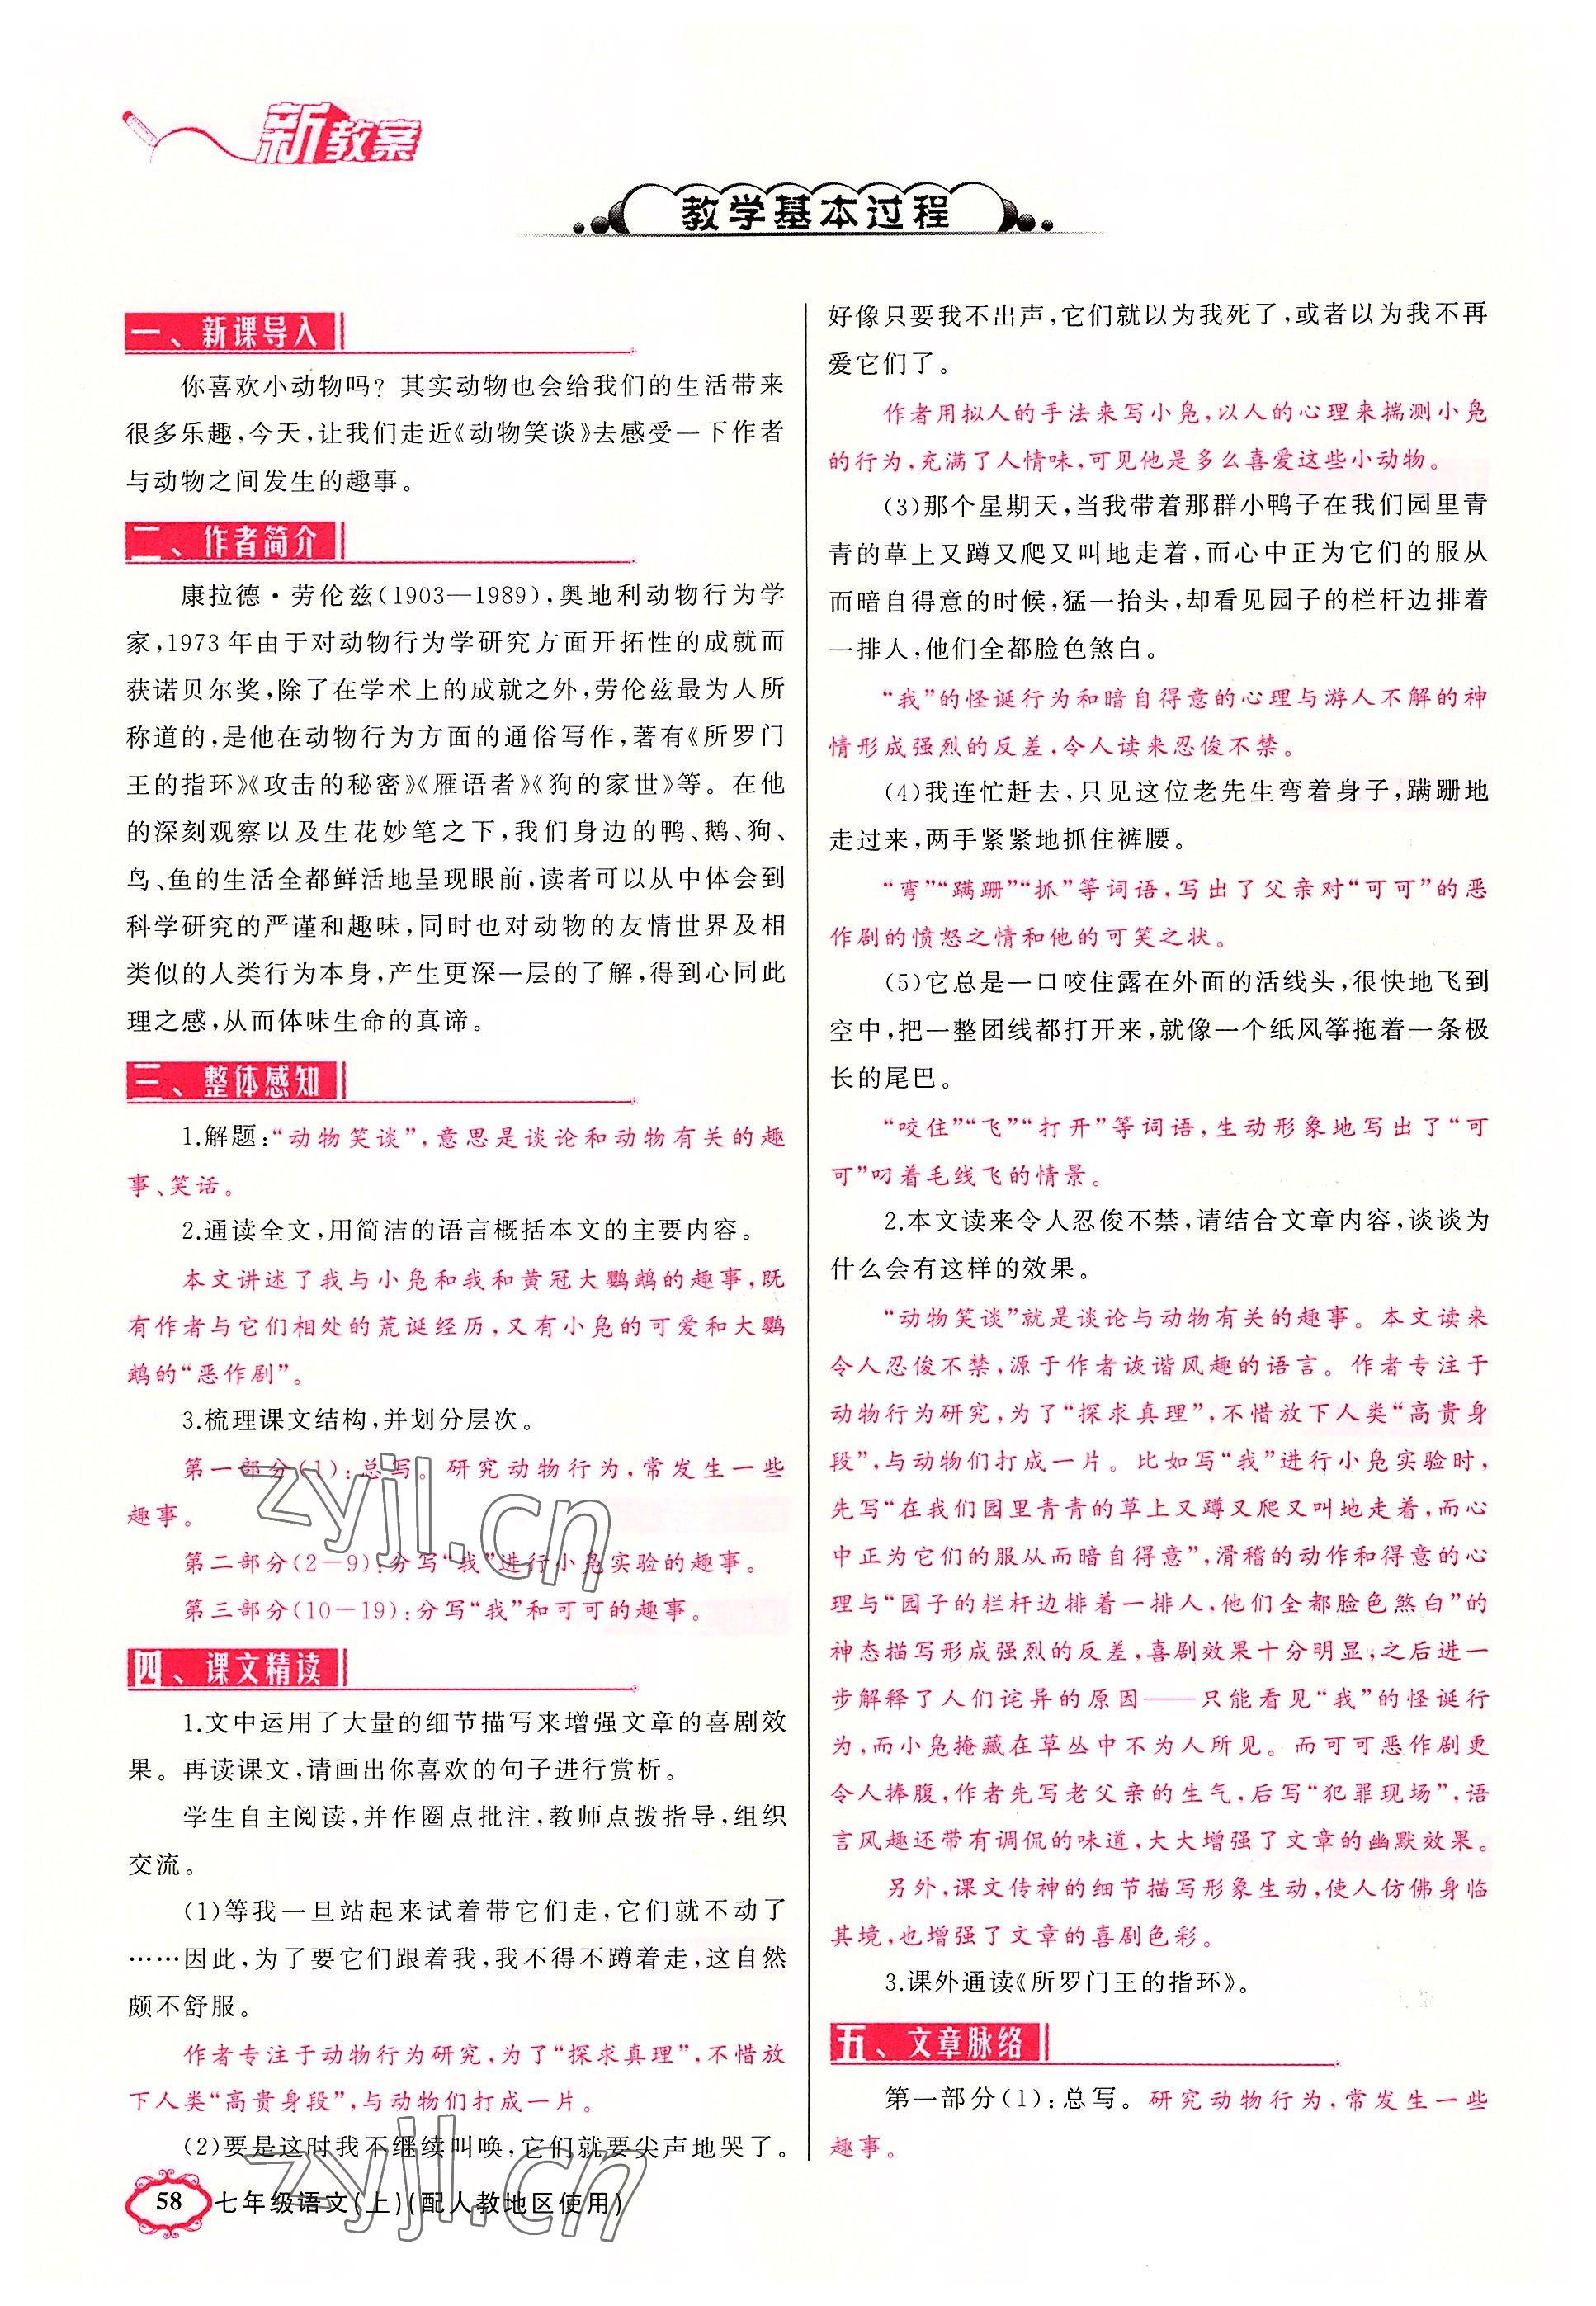 新教案
教学基本过程
一、新课导入
你喜欢小动物吗？其实动物也会给我们的生活带来
很多乐趣,今天,让我们走近《动物笑谈》去感受一下作者
与动物之间发生的趣事。
二、作者简介
康拉德·劳伦兹(1903—1989),奥地利动物行为学
家,1973年由于对动物行为学研究方面开拓性的成就而
获诺贝尔奖,除了在学术上的成就之外,劳伦兹最为人所
称道的,是他在动物行为方面的通俗写作,著有《所罗门
王的指环》《攻击的秘密》《雁语者》《狗的家世》等。在他
的深刻观察以及生花妙笔之下,我们身边的鸭、鹅、狗、
鸟、鱼的生活全都鲜活地呈现眼前,读者可以从中体会到
科学研究的严谨和趣味,同时也对动物的友情世界及相
类似的人类行为本身,产生更深一层的了解,得到心同此
理之感,从而体味生命的真谛。
三、整体感知
1.解题:“动物笑谈”,意思是谈论和动物有关的趣
事、笑话。
2.通读全文,用简洁的语言概括本文的主要内容。
本文讲述了我与小凫和我和黄冠大鹦鹉的趣事,既
有作者与它们相处的荒诞经历,又有小凫的可爱和大鹦
鹉的“恶作剧”。
3.梳理课文结构,并划分层次。
第一部分(1):总写。研究动物行为,常发生一些
趣事。
第二部分(2－9):分写“我”进行小凫实验的趣事。
第三部分(10－19):分写“我”和可可的趣事。
四、课文精读
1.文中运用了大量的细节描写来增强文章的喜剧效
果。再读课文,请画出你喜欢的句子进行赏析。
学生自主阅读,并作圈点批注,教师点拨指导,组织
交流。
(1)等我一旦站起来试着带它们走,它们就不动了
……因此,为了要它们跟着我,我不得不蹲着走,这自然
颇不舒服。
作者专注于动物行为研究,为了“探求真理”,不惜放
下人类“高贵身段”,与动物们打成一片。
(2)要是这时我不继续叫唤,它们就要尖声地哭了。
好像只要我不出声,它们就以为我死了,或者以为我不再
爱它们了。
作者用拟人的手法来写小凫,以人的心理来揣测小凫
的行为,充满了人情味,可见他是多么喜爱这些小动物。
(3)那个星期天,当我带着那群小鸭子在我们园里青
青的草上又蹲又爬又叫地走着,而心中正为它们的服从
而暗自得意的时候,猛一抬头,却看见园子的栏杆边排着
一排人,他们全都脸色煞白。
“我”的怪诞行为和暗自得意的心理与游人不解的神
情形成强烈的反差,令人读来忍俊不禁。
(4)我连忙赶去,只见这位老先生弯着身子,蹒跚地
走过来,两手紧紧地抓住裤腰。
“弯”“蹒跚”“抓”等词语,写出了父亲对“可可”的恶
作剧的愤怒之情和他的可笑之状。
(5)它总是一口咬住露在外面的活线头,很快地飞到
空中,把一整团线都打开来,就像一个纸风筝拖着一条极
长的尾巴。
“咬住”“飞”“打开”等词语,生动形象地写出了“可
可”叼着毛线飞的情景。
2.本文读来令人忍俊不禁,请结合文章内容,谈谈为
什么会有这样的效果。
“动物笑谈”就是谈论与动物有关的趣事。本文读来
令人忍俊不禁,源于作者诙谐风趣的语言。作者专注于
动物行为研究,为了“探求真理”,不惜放下人类“高贵身
段”,与动物们打成一片。比如写“我”进行小凫实验时,
先写“在我们园里青青的草上又蹲又爬又叫地走着,而心
中正为它们的服从而暗自得意”,滑稽的动作和得意的心
理与“园子的栏杆边排着一排人,他们全都脸色煞白”的
神态描写形成强烈的反差,喜剧效果十分明显,之后进一
步解释了人们诧异的原因——只能看见“我”的怪诞行
为,而小凫掩藏在草丛中不为人所见。而可可恶作剧更
令人捧腹,作者先写老父亲的生气,后写“犯罪现场”,语
言风趣还带有调侃的味道,大大增强了文章的幽默效果。
另外,课文传神的细节描写形象生动,使人仿佛身临
其境,也增强了文章的喜剧色彩。
3.课外通读《所罗门王的指环》。
五、文章脉络
第一部分(1):总写。研究动物行为,常发生一些
趣事。
58 七年级语文(上)(配人教地区使用)
zyjl.cn
zyjl.cn